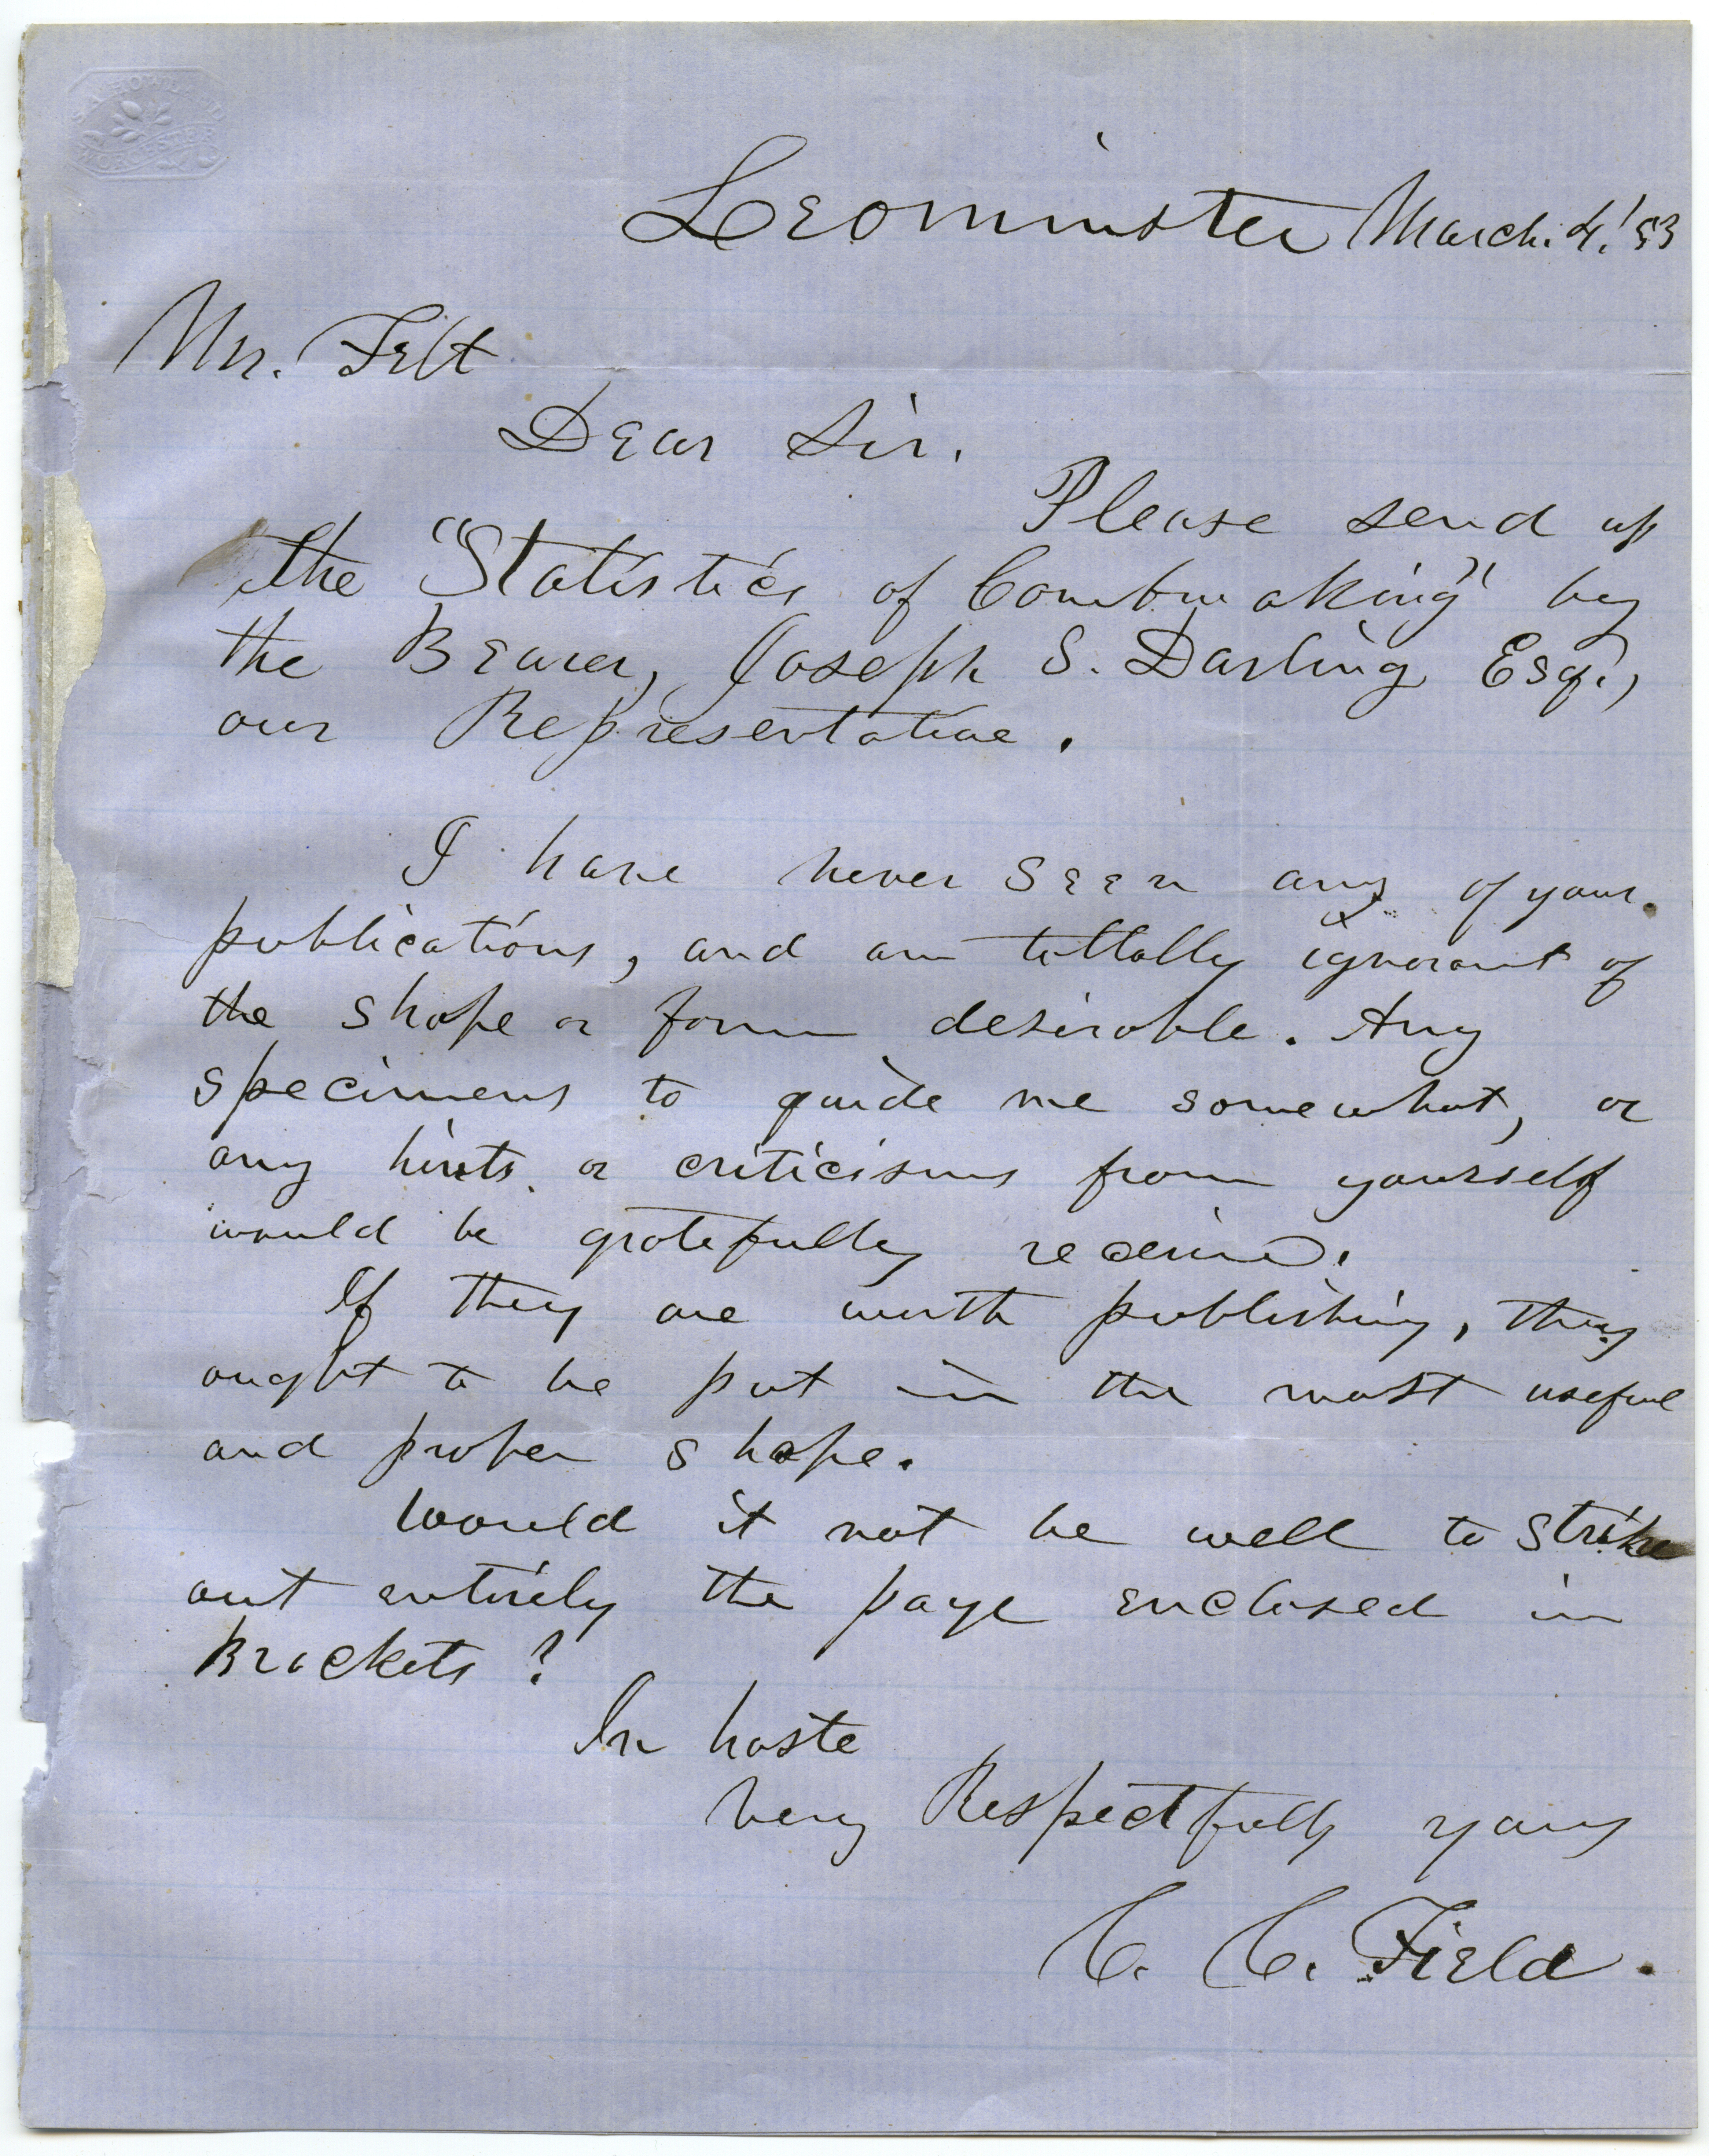 S. A. HOWLAND
WORCESTER
Leominster March. 4,' 53
Mr. Felt
Dear Sir.
Please send up
the "Statistics of Combmaking" by
the Bearer, Joseph S. Darling Esq.,
our Representative.
I have never seen any of your
publications, and am tottally ignorant of
the shape or form desirable. Any
specimens to guide me somewhat, or
any hints or criticisms from yourself
would be gratefully received.
If they are worth publishing, they
ought to be put in the most useful
and proper shape.
Would it not be well to strike
out entirely the page enclosed in
Brackets?
In haste
Very Respectfully yours
C. C. Field.